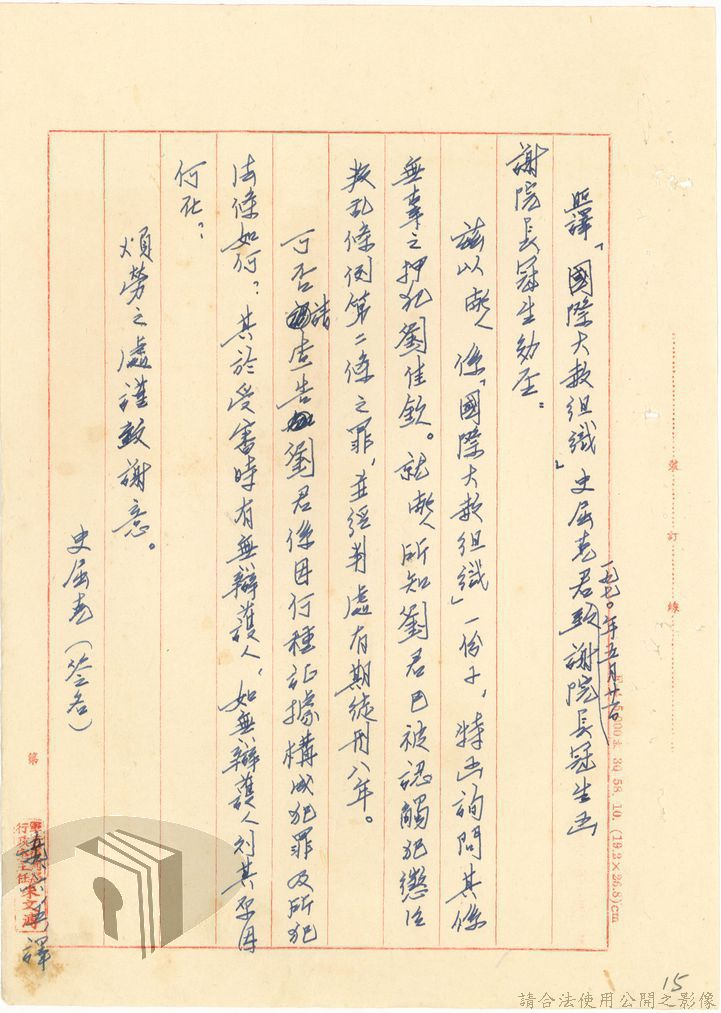 照譯「國際大赦組織」史屈克君致謝院長冠生函
一九七〇年五月廿六日
謝院長冠生勛鑒：
茲以鄙人係「國際大赦組織」一份子，特函詢問其係
無辜之押犯劉佳欽。就鄙人所知劉君已被認觸犯懲治
叛乱條例第二條之罪，並經判處有期徒刑八年。
可否請查告劉君係因何種証據構成犯罪及所犯
法條如何？其於受審時有無辯護人，如無辯護人則其原因
何在？
煩勞之處謹致謝意。
史屈克（签名）
譯
裝 訂 線
第
5,000本 39 58. 10. (19.2×26.8)cm
15
請合法使用公開之影像